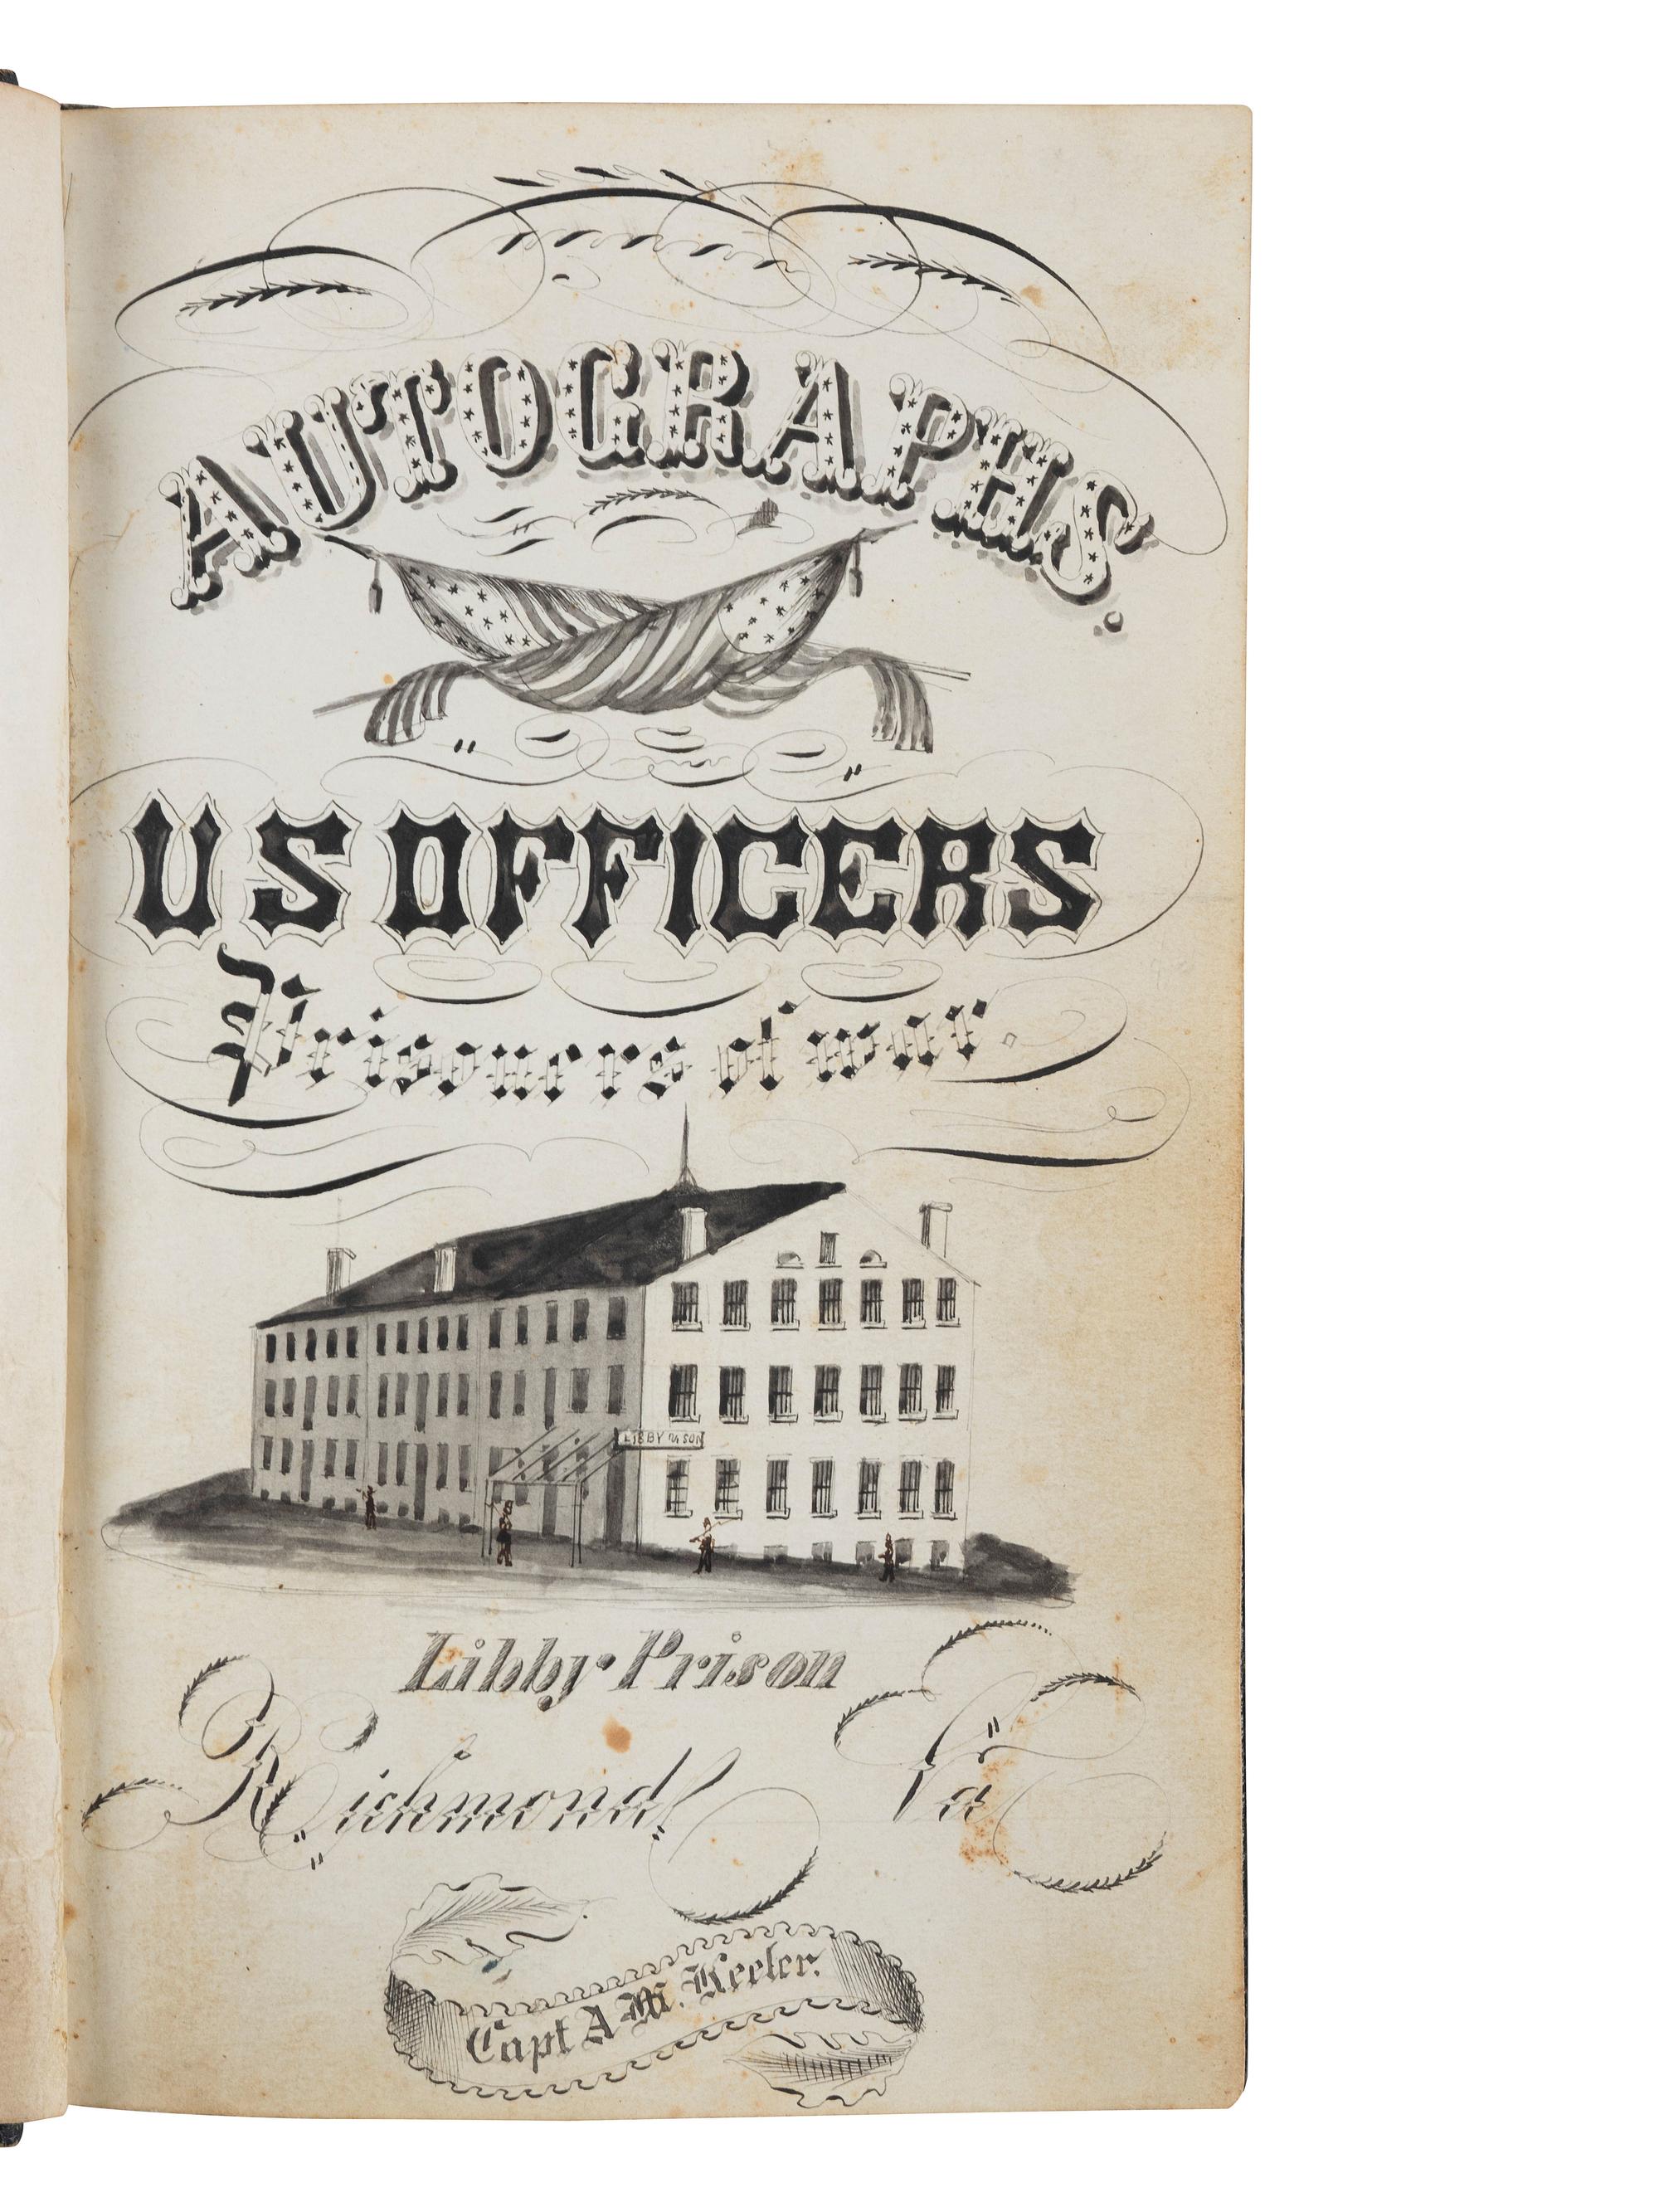 AUTOGRAPHS.
US OFFICERS
Prisoners of war.
LIBBY PRISON
Libby Prison
Richmond Va
Capt A M. Keeler.